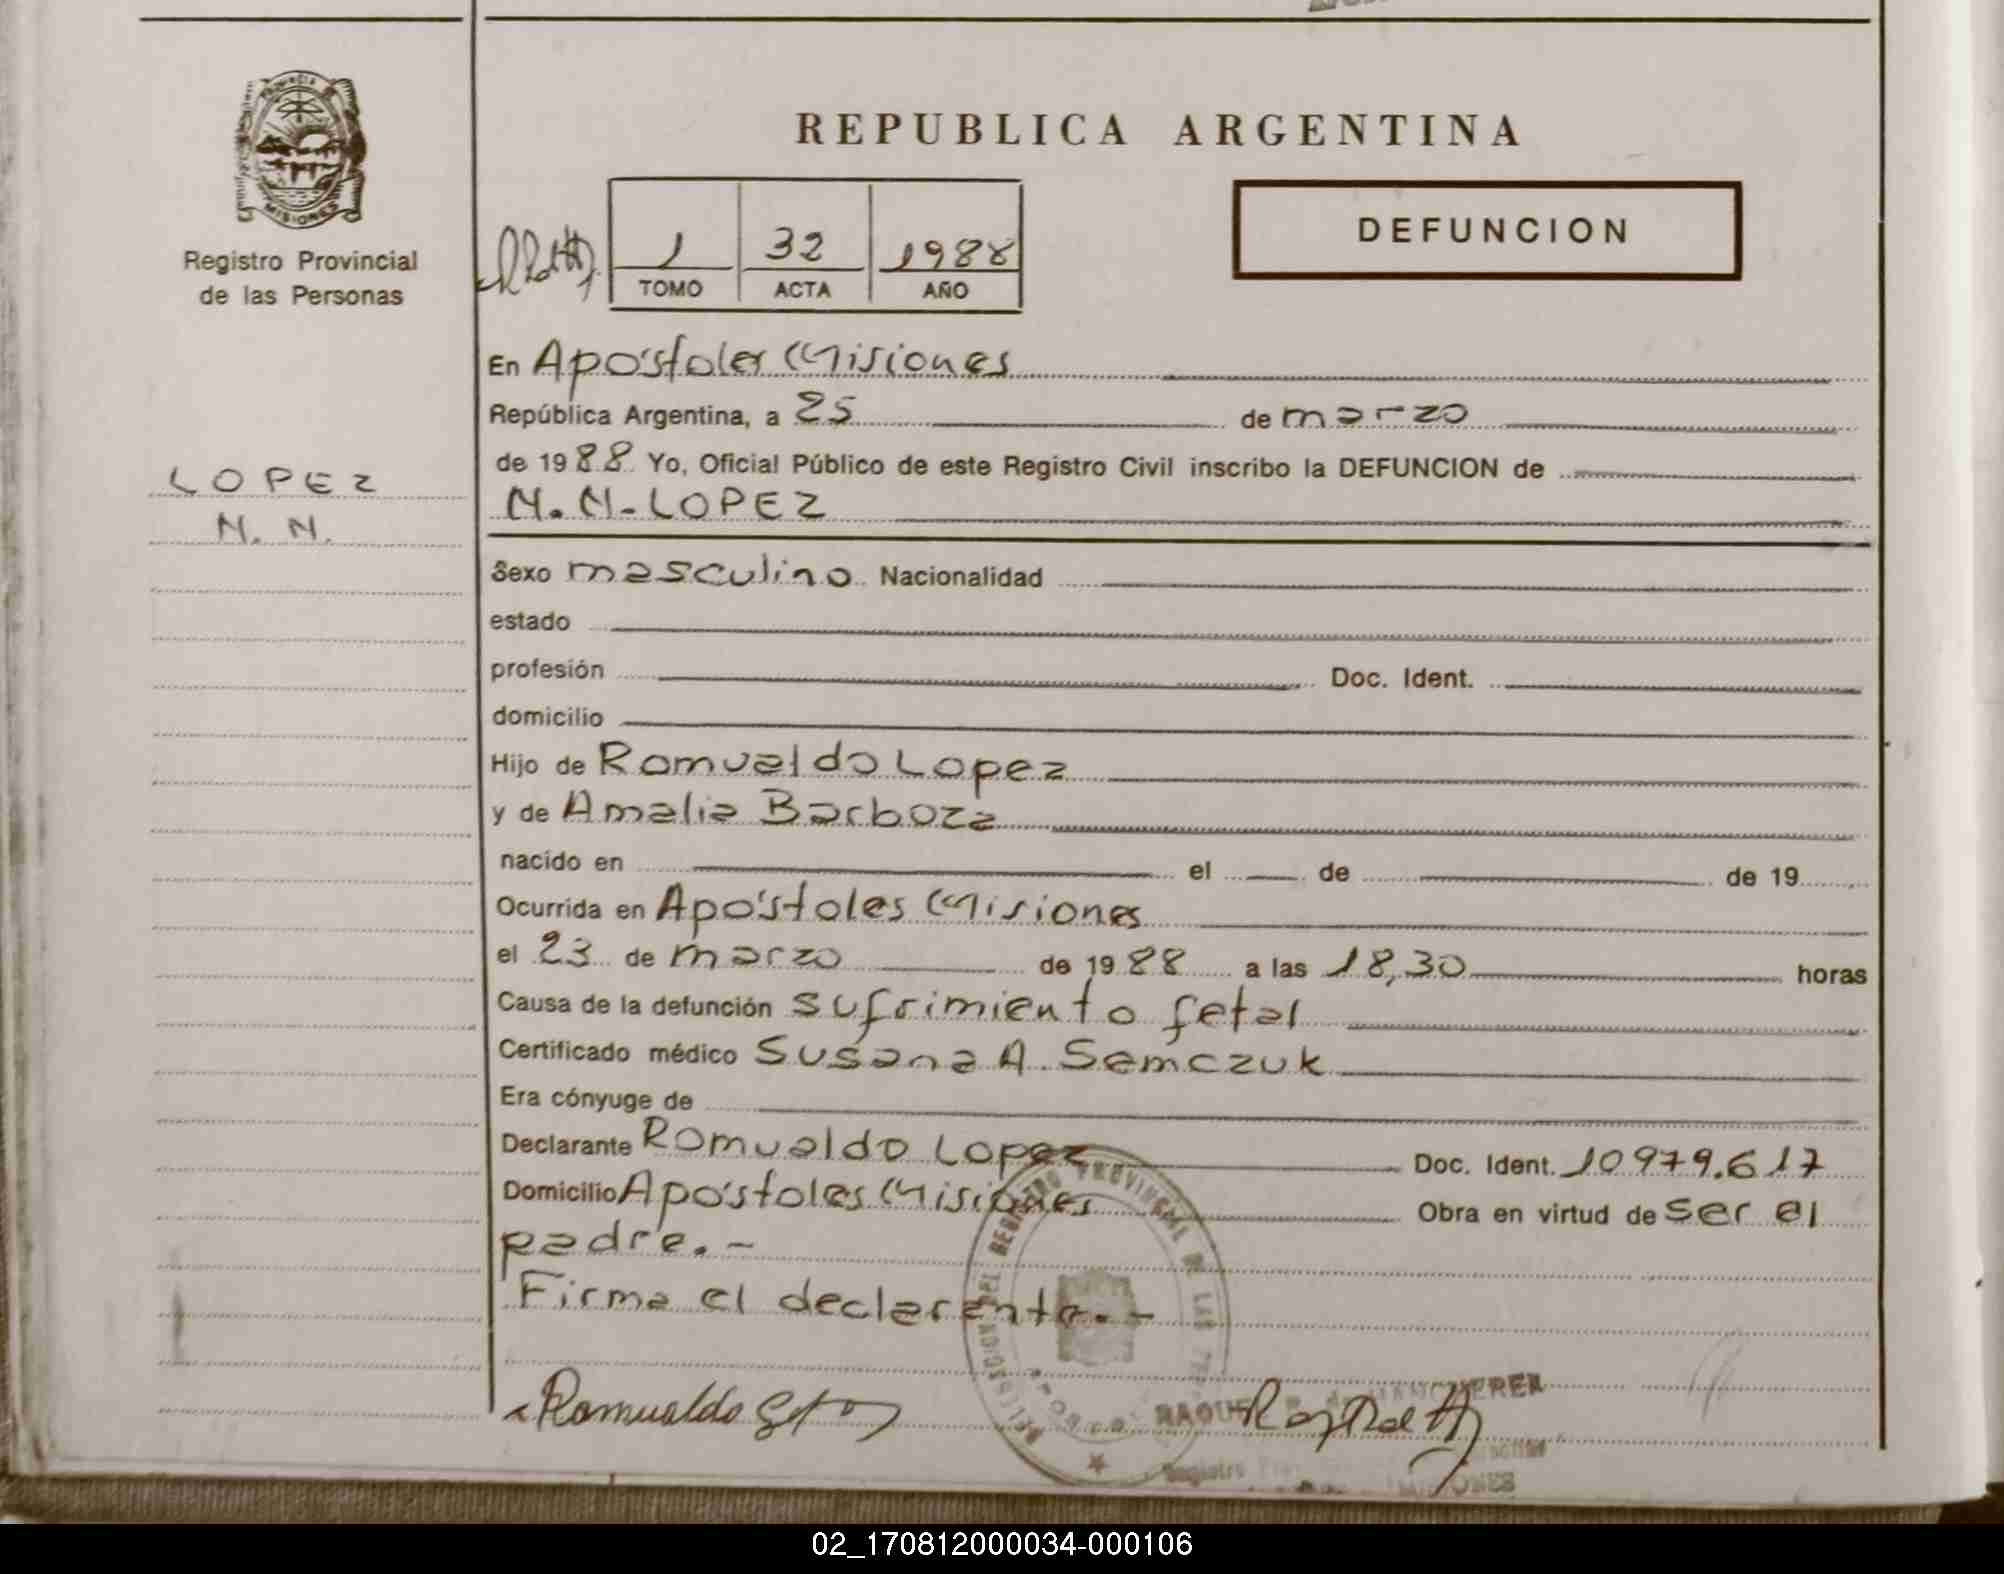 PROVINCIA DE
MISIONES
Registro Provincial
de las Personas
LOPEZ
N. N.
REPUBLICA ARGENTINA
1 32 1988
TOMO ACTA AÑO
DEFUNCION
En Apóstoles Misiones
República Argentina, a 25 de marzo
de 1988 Yo, Oficial Público de este Registro Civil inscribo la DEFUNCION de
N. N. - LOPEZ
Sexo masculino Nacionalidad
estado
profesión Doc. Ident.
domicilio
Hijo de Romualdo Lopez
y de Amalia Barboza
nacido en el de de 19
Ocurrida en Apóstoles Misiones
el 23 de marzo de 1988 a las 18,30 horas
Causa de la defunción sufrimiento fetal
Certificado médico Susana A. Semczuk
Era cónyuge de
Declarante Romualdo Lopez Doc. Ident. 10979.617
Domicilio Apóstoles Misiones Obra en virtud de ser el
padre. -
Firma el declarante. -
Romualdo
REGISTRO PROVINCIAL DE LAS
RAQUEL
Registro
MISIONES
02_170812000034-000106